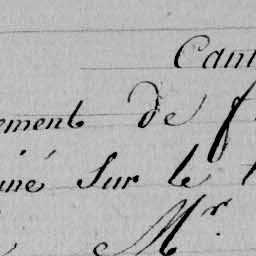 Cant
ement de f
iné sur le
Mr.